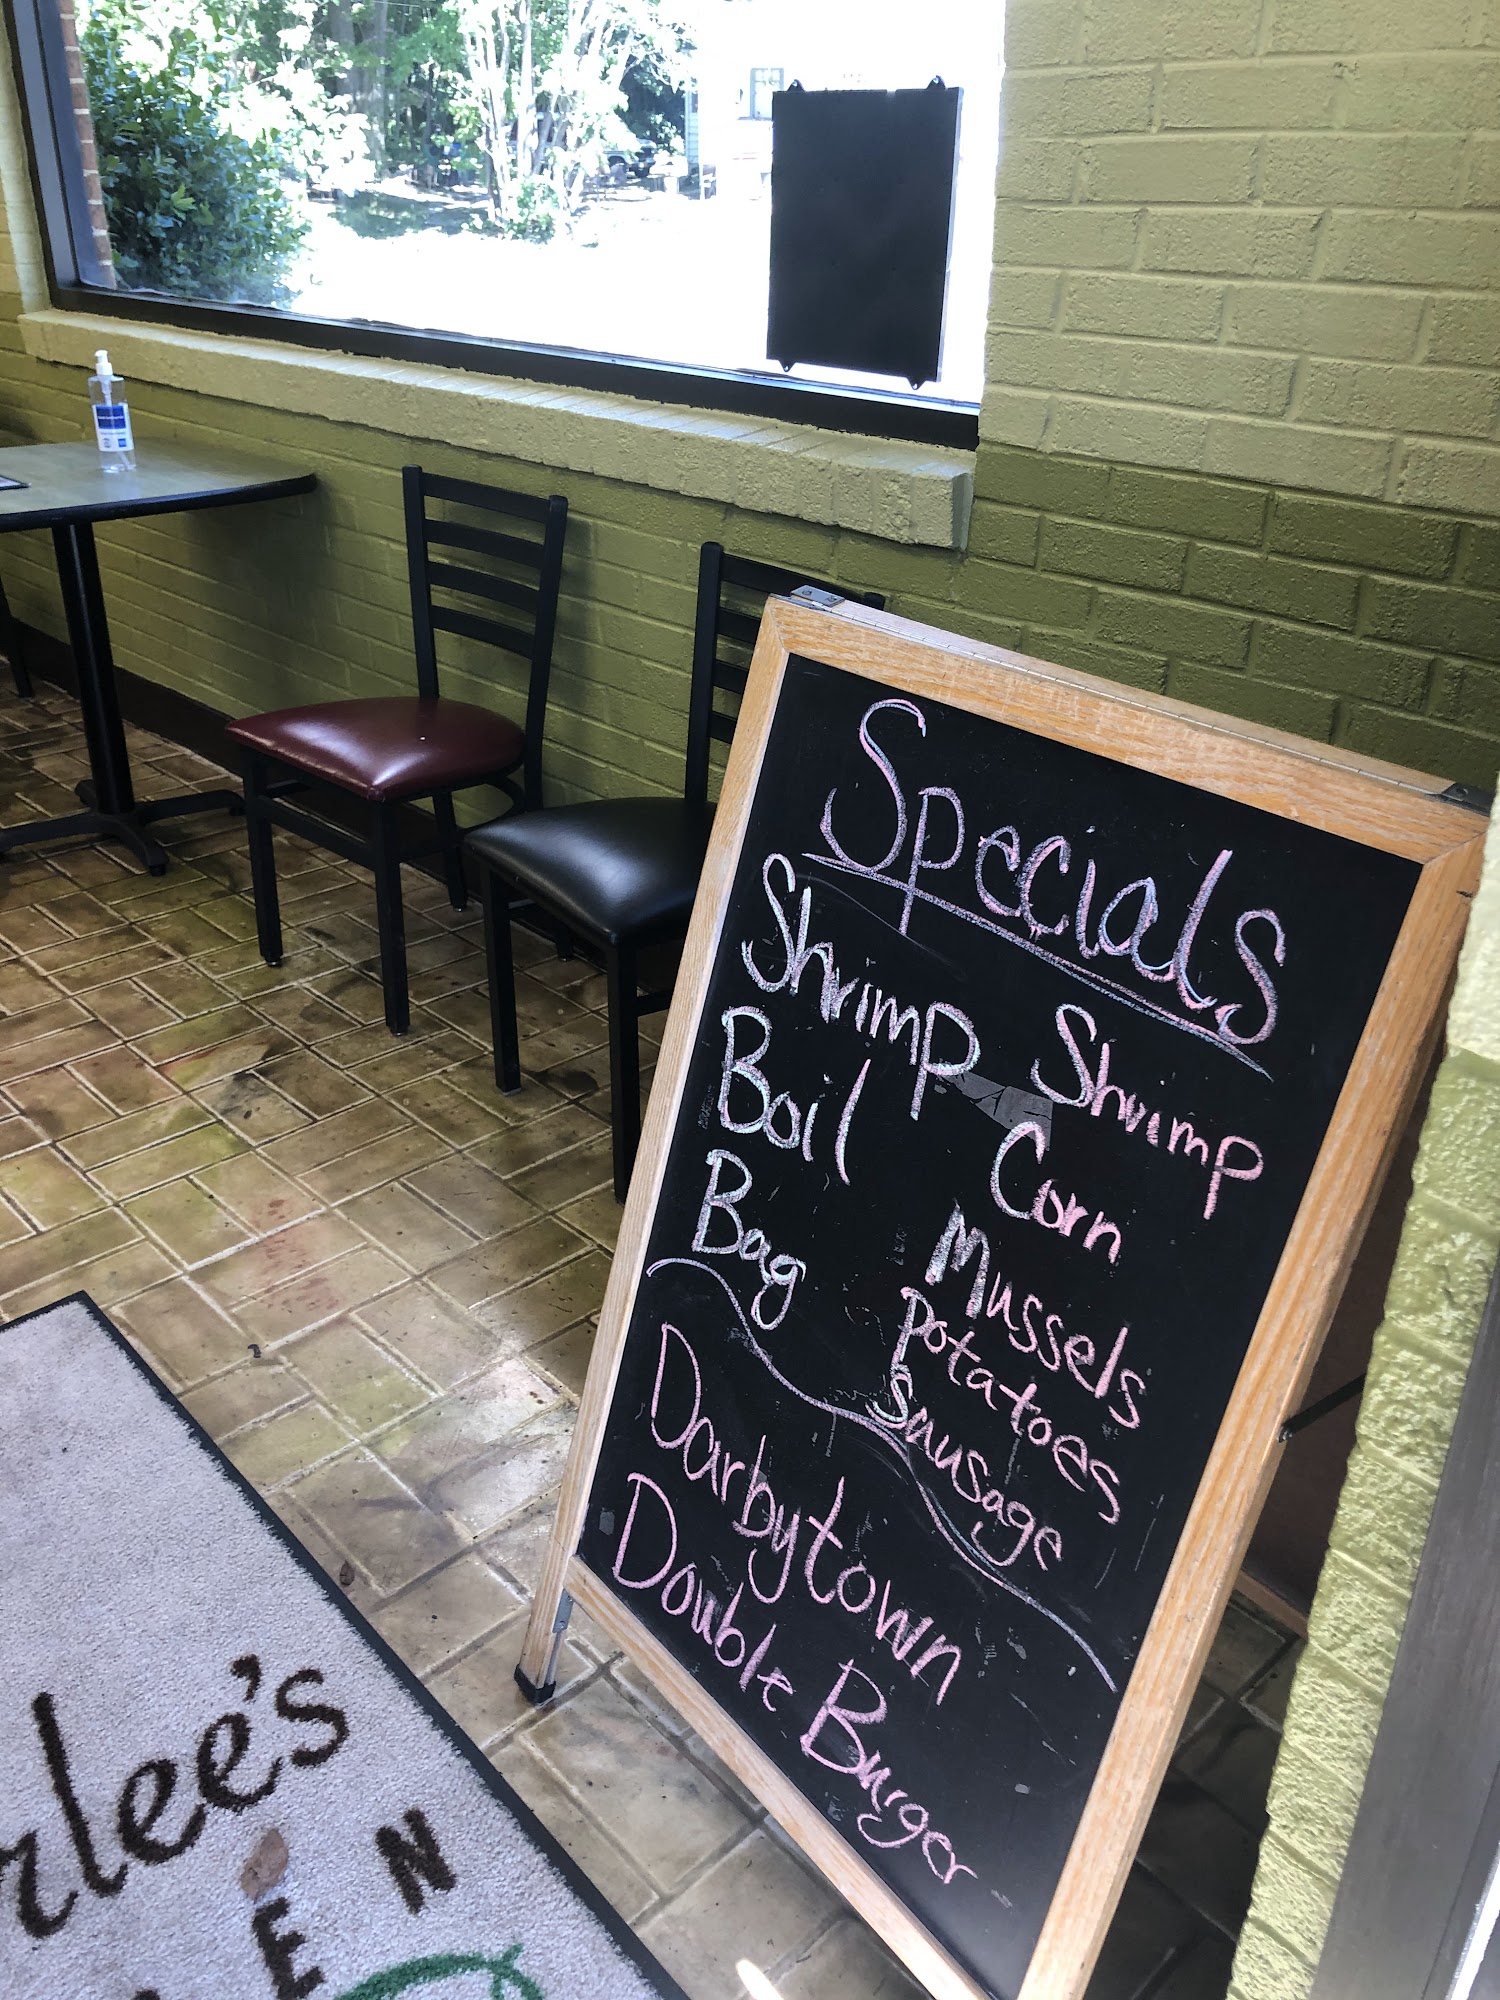 Specials
Shrimp
Boil
Bag
Shrimp
Corn
Mussels
Potatoes
Sausage
Darbytown
Double Burger
rlee's
EN